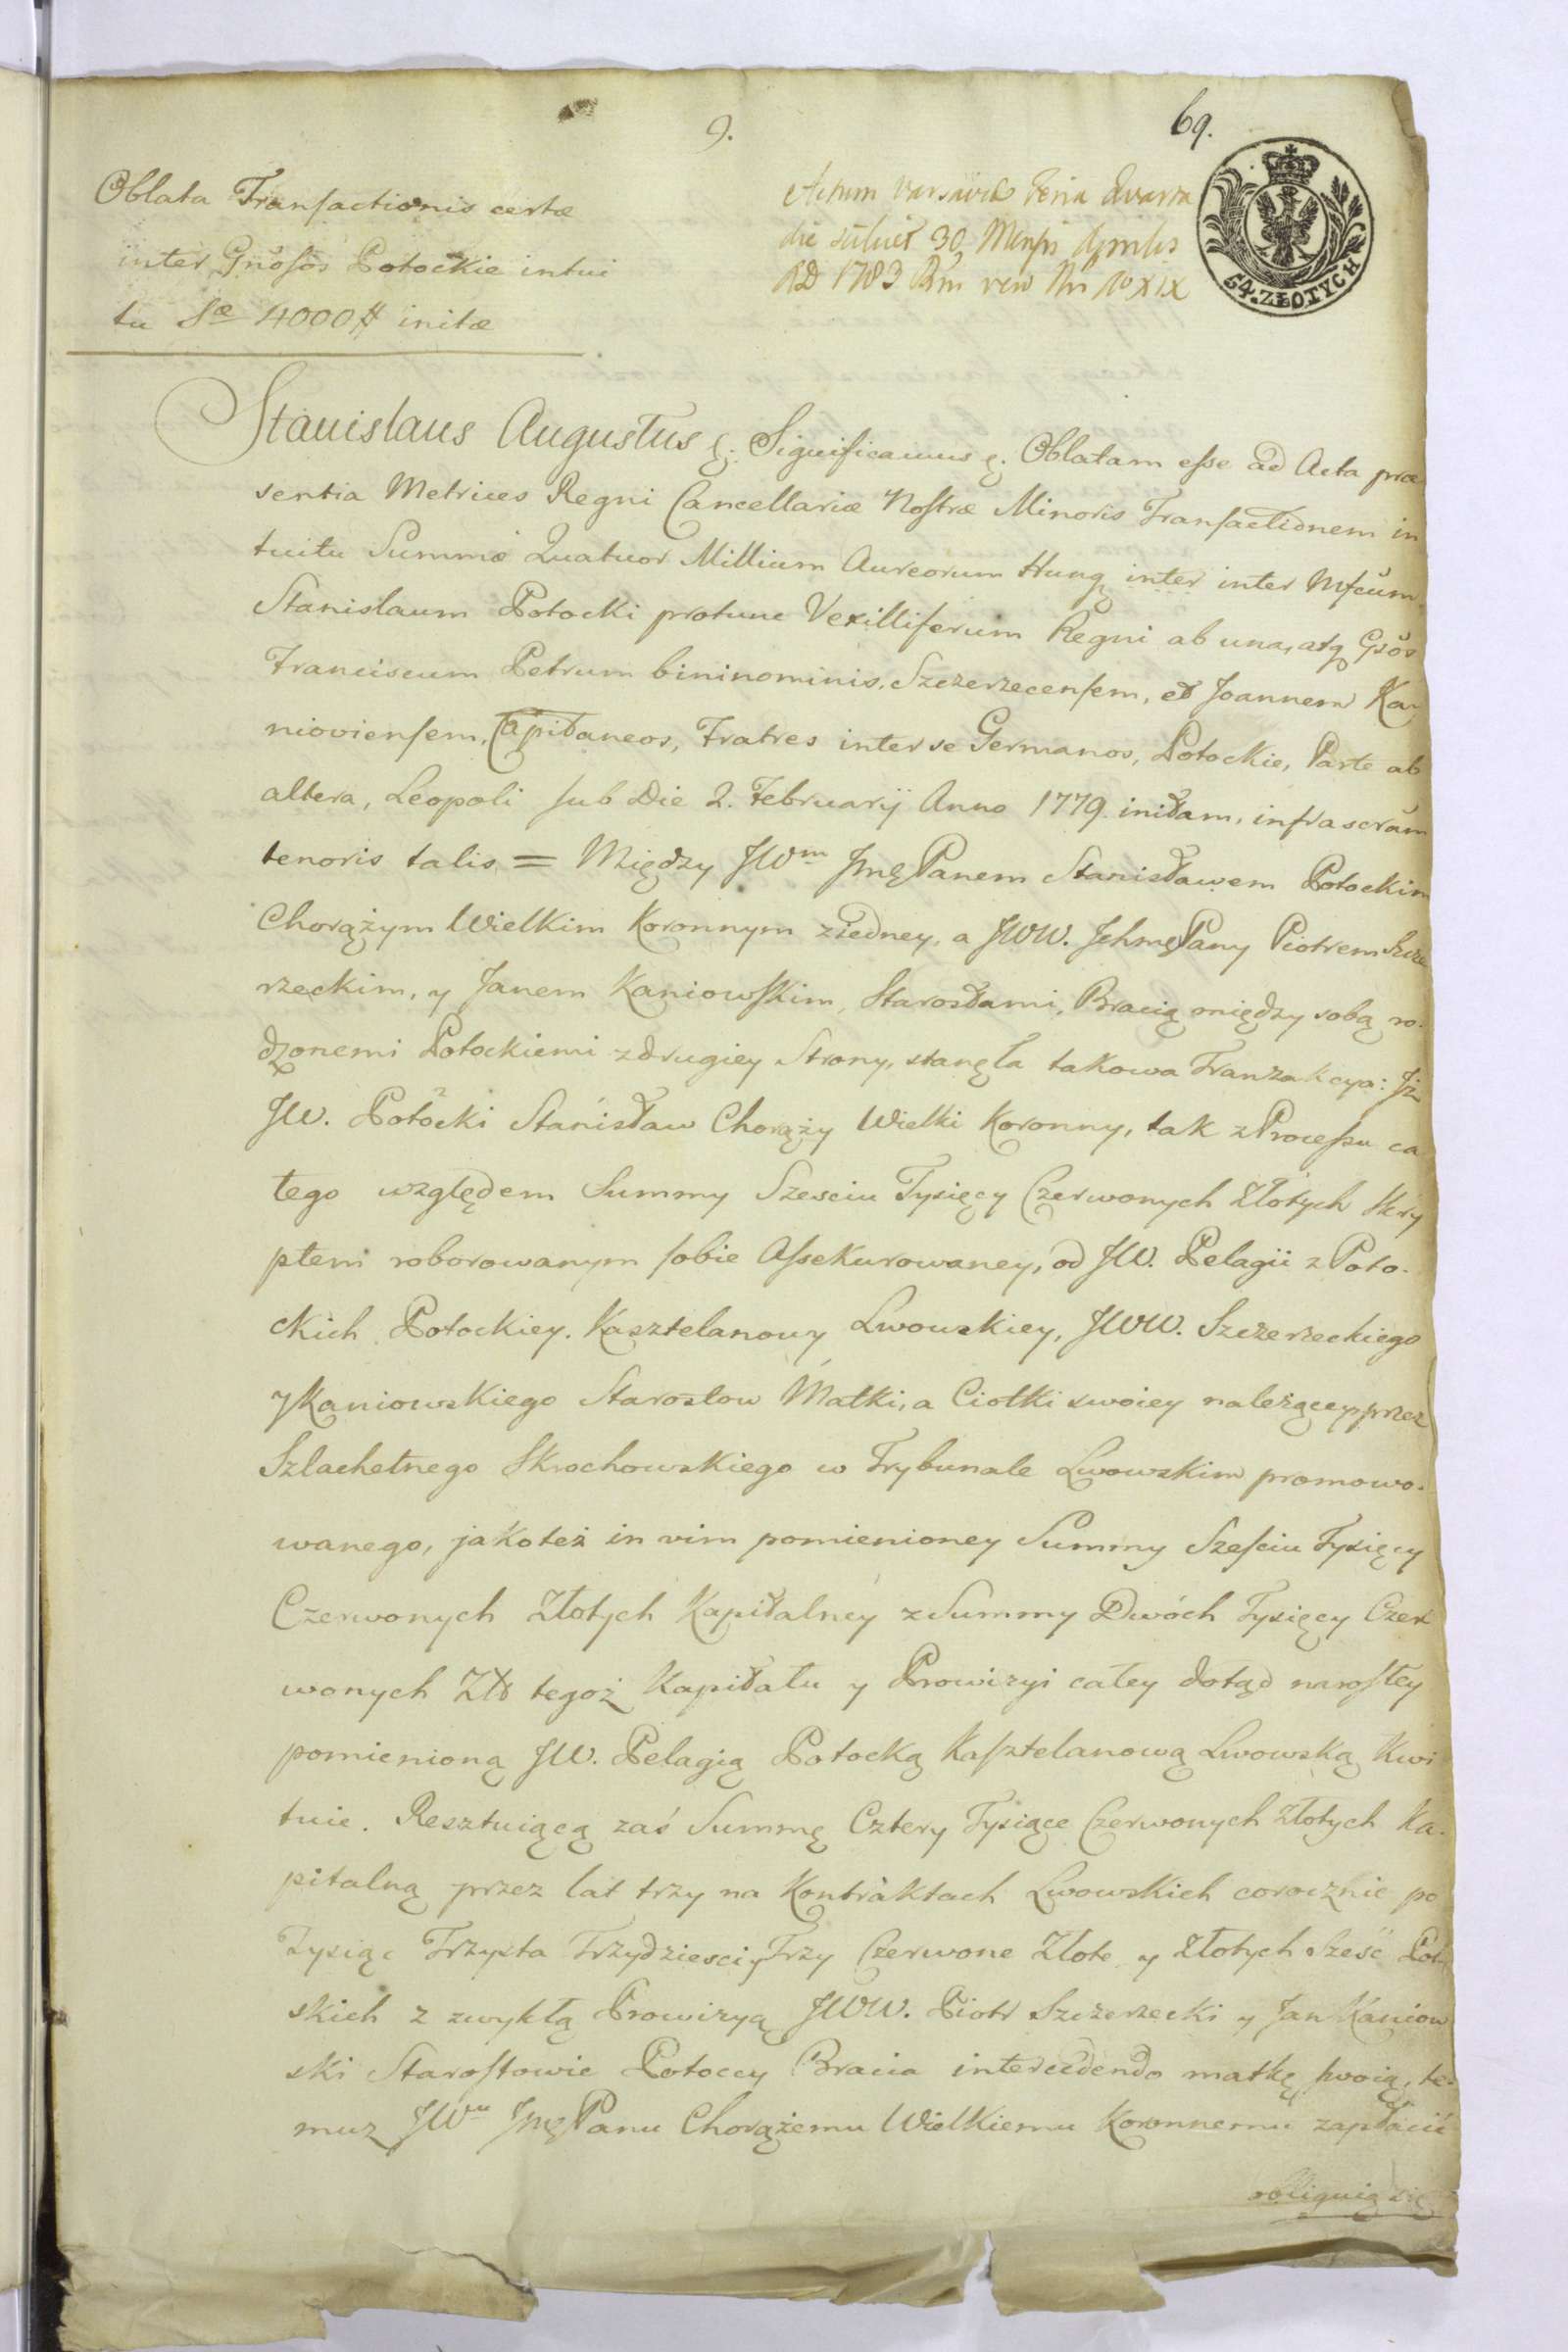 9.
69.
Oblata Transactionis certæ
inter Gnosos Potockie intui
tu Sæ 4000 # initæ
Actum Varsaviæ Feria Quarta
die 30 Mensis Aprilis
AD 1783
64. ZŁOTYCH
Stanislaus Augustus &. Significamus &. Oblatam esse ad Acta præ
sentia Metrices Regni Cancellariæ Nostræ Minoris Transactionem in
tuitu Summæ Quatuor Millium Aureorum Hung inter inter Mfcum
Stanisłaum Potocki protunc Vexilliferum Regni ab una, atq Gsos
Franciscum Petrum bininominis, Szczerzecensem, et Joannem Ka-
nioviensem, Capitaneos, Fratres inter se Germanos, Potockie, Parte ab
altera, Leopoli sub Die 2. Februarij Anno 1779. initam, infrascrum
tenoris talis = Między JWm JmęPanem Stanisławem Potockim
Chorążym Wielkim Koronnym ziedney, a JWW. JchmęPany Piotrem Szcze
rzeckim, y Janem Kaniowskim, Starostami, Bracią między sobą ro-
dzonemi Potockiemi z drugiey Strony, stanęła takowa Tranzakcya: Jż
JW. Potocki Stanisław Chorąży Wielki Koronny, tak z Processu ca
łego względem Summy Szesciu Tysięcy Czerwonych Złotych Skry
ptem roborowanym sobie Assekurowaney, od JW. Pelagii z Poto-
ckich Potockiey. Kasztelanowy Lwowskiey, JWW. Szczerzeckiego
y Kaniowskiego Starostow Matki, a Ciotki swoiey należącey przez
Szlachetnego Skrochowskiego w Trybunale Lwowskim promowo-
wanego, jako też in vim pomienioney Summy Sześciu Tysięcy
Czerwonych Złotych Kapitalney z Summy Dwóch Tysięcy Czer
wonych Zło tegoż Kapitału y Prowizyi całey dotąd narosłey
pomienioną JW. Pelagią Potocką Kasztelanową Lwowską Kwi
tuie. Resztuiącą zaś Summę Cztery Tysiące Czerwonych Złotych Ka-
pitalną przez lat trzy na Kontraktach Lwowskich corocznie po
Tysiąc Trzysta Trzydziesci y Trzy Czerwone Złote y Złotych Sześć Pol
skich z zwykłą Prowizyą JWW. Piotr Szczerzecki y Jan Kaniow
ski Starostowie Potoccy Bracia intercedendo matkę swoią, te-
muz JWu JmęPanu Chorążemu Wielkiemu Koronnemu zapłacić
obliguią się